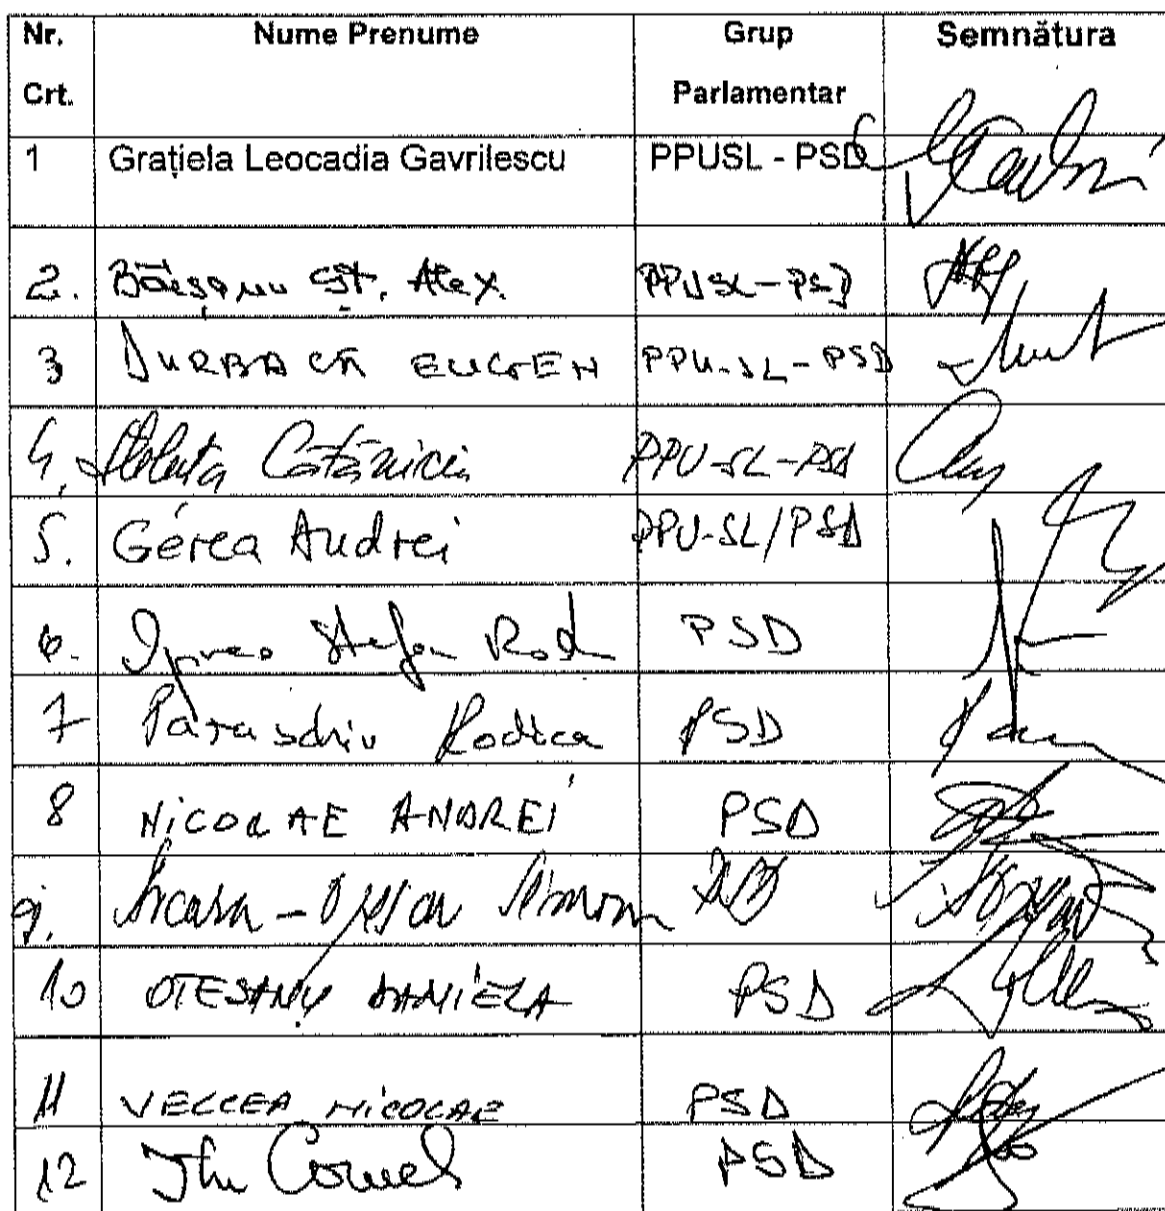 Nr. Crt. Nume Prenume Grup Parlamentar Semnătura
1 Grațiela Leocadia Gavrilescu PPUSL - PSD
2. Băișanu Șt. Alex. PPUSL-PSD
3 DURBACĂ EUGEN PPU-SL-PSD
4. Steluța Cătăniciu PPU-SL-PSD
5. Gerea Andrei PPU-SL/PSD
6. Ștefan PSD
7 Paraschiv Rodica PSD
8 NICOLAE ANDREI PSD
9.
10 OTEȘANU DANIELA PSD
11 VELCEA NICOLAE PSD
12 Cornel PSD